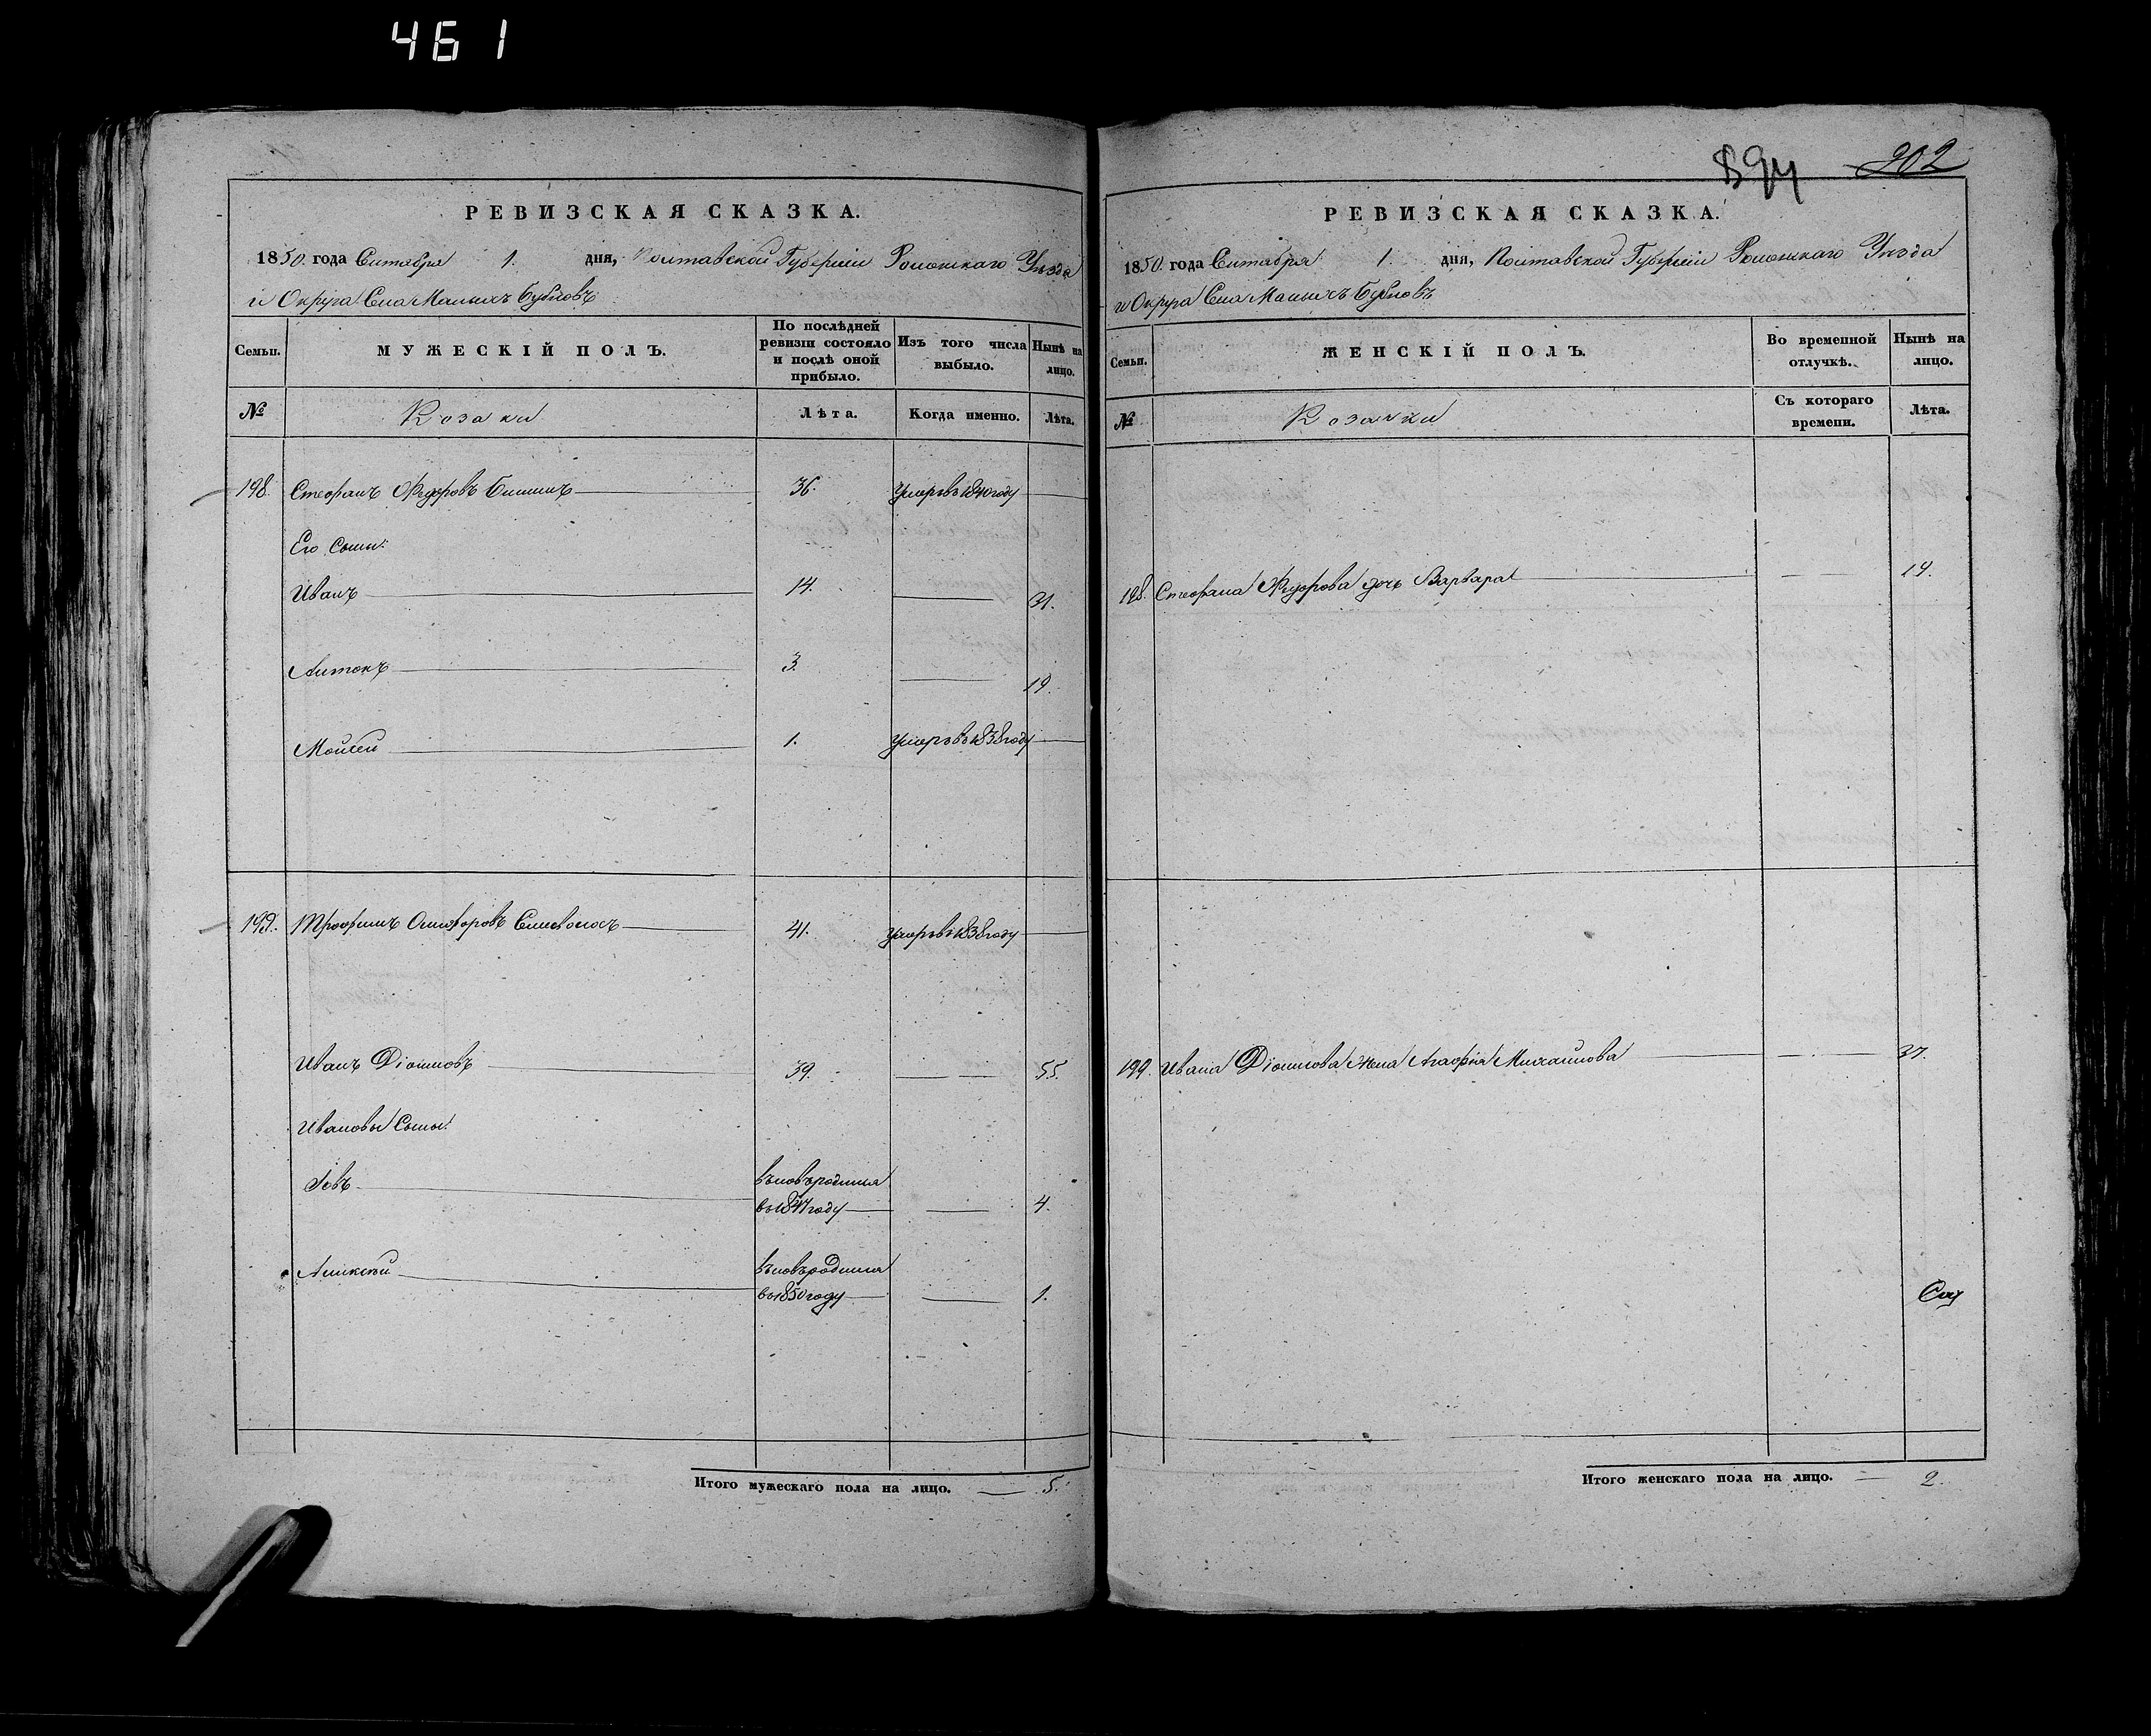 461
894 202
РЕВИЗСКАЯ СКАЗКА.
1850. года Сентября 1. дня, Полтавской Губерніи Роменскаго Уѣзда
и Округа Села Малыхъ Бубновъ
Семьи. МУЖЕСКІЙ ПОЛЪ. По послѣдней ревизіи состояло и послѣ оной прибыло. Изъ того числа выбыло. Нынѣ на лицо.
№ Козаки Лѣта. Когда именно. Лѣта.
198. Стефанъ Федоровъ 36. Умеръ въ 1840 году
Его Сыны:
Иванъ 14. 31.
Антонъ 3. 19.
Моисей 1. Умеръ въ 1838 году
199. Трофимъ Олиферовъ Сиволосъ 41. Умеръ въ 1838 году
Иванъ Діонисовъ 39. 55.
Ивановы Сыны:
Іовъ вновь родился
въ 1847 году 4.
Алексей вновь родился
въ 1850 году 1.
Итого мужескаго пола на лицо. 5.
РЕВИЗСКАЯ СКАЗКА.
1850. года Сентября 1. дня, Полтавской Губерніи Роменскаго Уѣзда
и Округа Села Малыхъ Бубновъ
Семьи. ЖЕНСКІЙ ПОЛЪ. Во временной отлучкѣ. Нынѣ на лицо.
№ Козачки Съ котораго времени. Лѣта.
198. Стефана Федорова дочь Варвара 14.
199. Ивана Діонисова жена Агафія Михайлова 37.
Итого женскаго пола на лицо. 2.